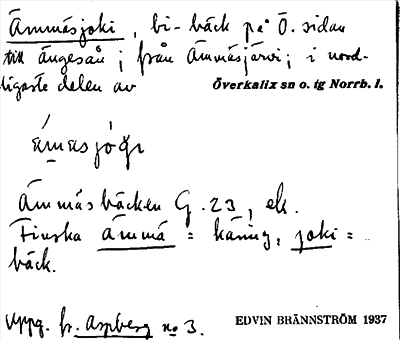 Ämmäsjoki, bi-bäck på Ö. sidan
till ängesån; från Ämmäsjärvi; i nord-
ligaste delen av Överkalix sn o. tg Norrb. l.
Ämmäsbäcken G. 23, ek.
Finska ämmä = käring, joki =
bäck.
Uppg. fr. Aspberg no 3.
EDVIN BRÄNNSTRÖM 1937